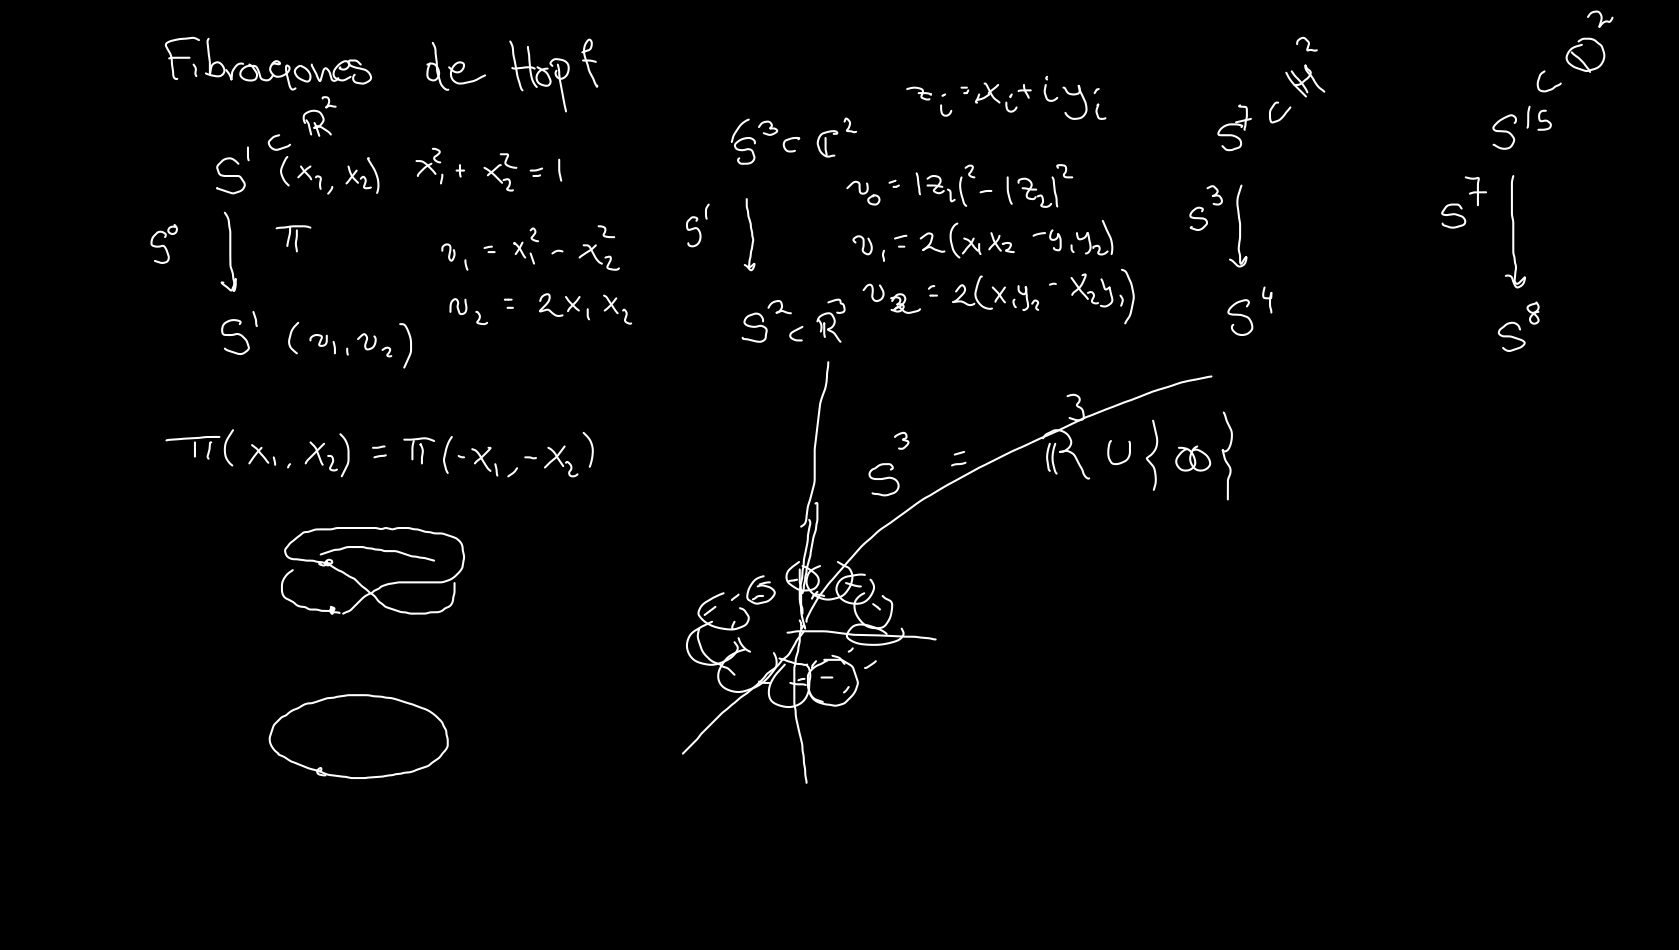 Fibraciones de Hopf
S¹ ⊂ ℝ² (x₁, x₂) x₁² + x₂² = 1
S⁰ ↓ π
v₁ = x₁² - x₂²
v₂ = 2x₁x₂
S¹ (v₁, v₂)
π(x₁, x₂) = π(-x₁, -x₂)
z_i = x_i + i y_i
S³ ⊂ ℂ²
S¹ ↓
v₀ = |z₁|² - |z₂|²
v₁ = 2(x₁x₂ - y₁y₂)
v₂ = 2(x₁y₂ - x₂y₁)
S² ⊂ ℝ³
S³ = ℝ³ ∪ {∞}
S⁷ ⊂ ℍ²
S³ ↓
S⁴
S¹⁵ ⊂ 𝕆²
S⁷ ↓
S⁸